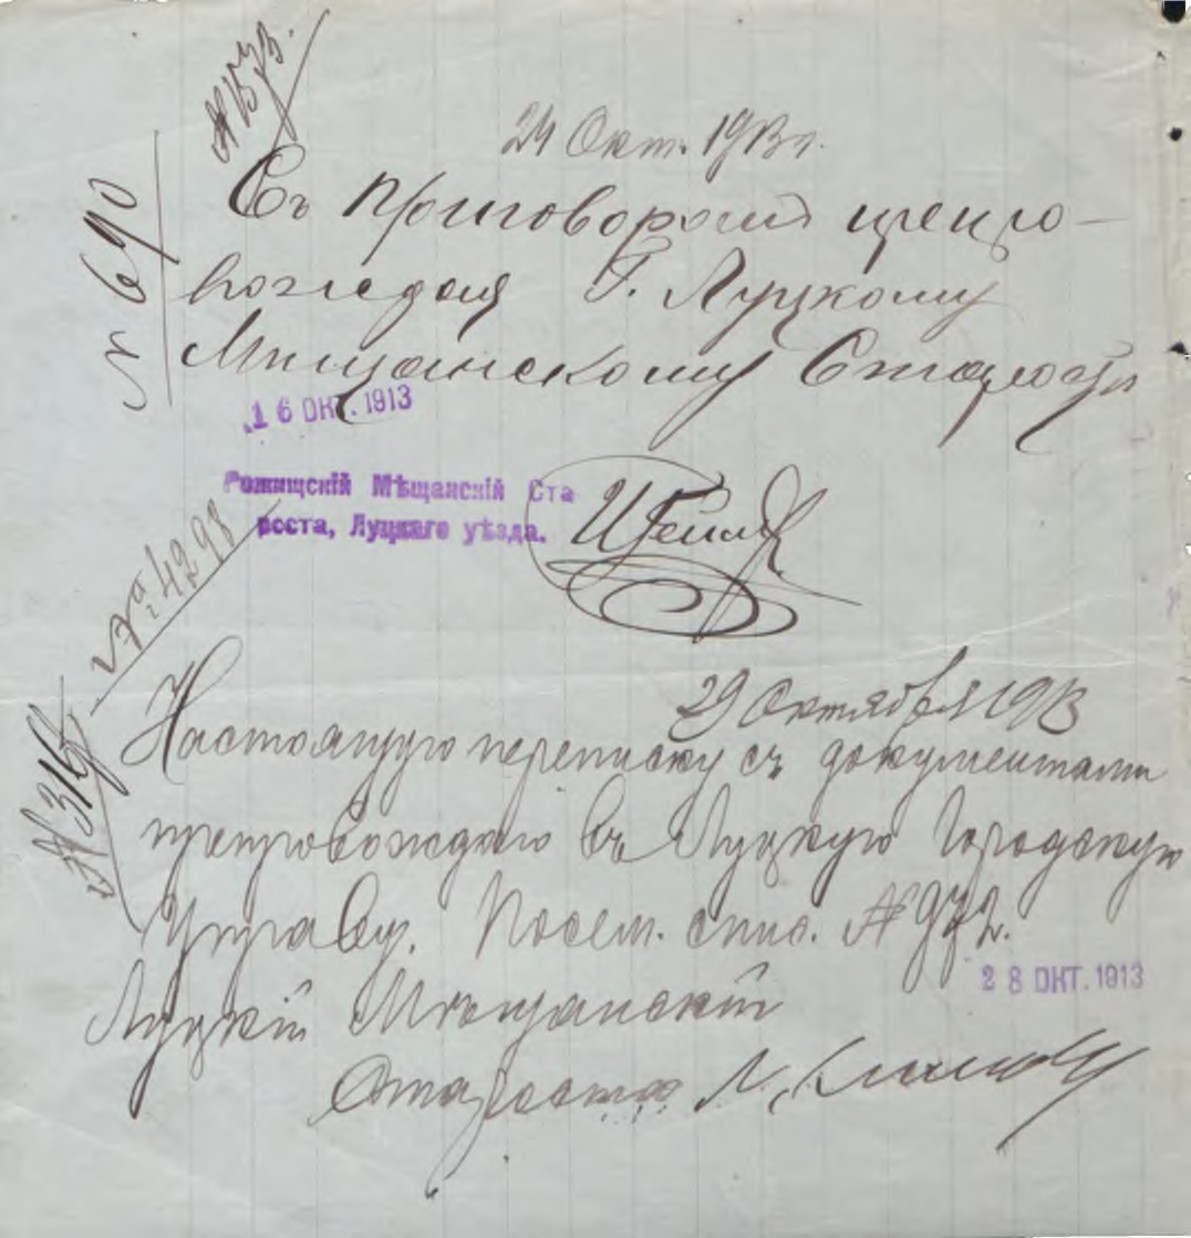 24 Окт. 1913 г.
№ 690
Съ приговоромъ препро-
вождаю Г. Луцкому
Мищанскому Старостѣ
16 ОКТ. 1913
Рожищскій Мѣщанскій Ста
роста, Луцкаго уѣзда.
4298
29 Октября 1913
Настоящую переписку съ документами
препровождаю въ Луцкую Городскую
Управу. Посем. спис. № 972.
28 ОКТ. 1913
Луцкій Мѣщанскій
Староста